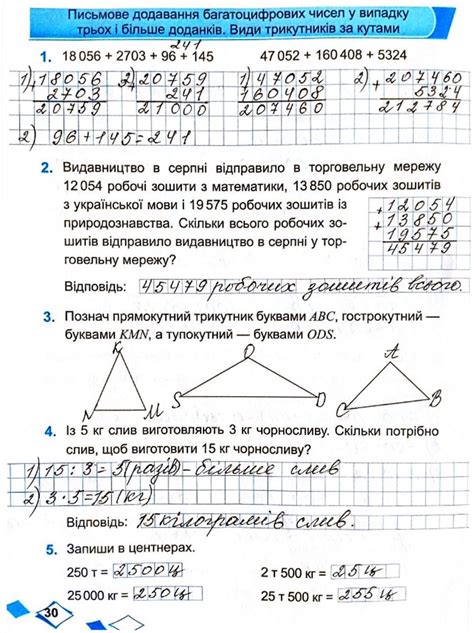 Письмове додавання багатоцифрових чисел у випадку
трьох і більше доданків. Види трикутників за кутами
241
1. 18 056 + 2703 + 96 + 145 47 052 + 160 408 + 5324
1) + 18056 2) + 20759 1) + 47052 2) + 207460
2703 241 160408 5324
20759 21000 207460 212784
2) 96 + 145 = 241
2. Видавництво в серпні відправило в торговельну мережу
12 054 робочі зошити з математики, 13 850 робочих зошитів
з української мови і 19 575 робочих зошитів із
природознавства. Скільки всього робочих зо-
шитів відправило видавництво в серпні у тор-
говельну мережу?
+ 12054
+ 13850
19575
45479
Відповідь: 45479 робочих зошитів всього.
3. Познач прямокутний трикутник буквами ABC, гострокутний —
буквами KMN, а тупокутний — буквами ODS.
K O A
N M S D C B
4. Із 5 кг слив виготовляють 3 кг чорносливу. Скільки потрібно
слив, щоб виготовити 15 кг чорносливу?
1) 15 : 3 = 5 (разів) - більше слив
2) 3 · 5 = 15 (кг)
Відповідь: 15 кілограмів слив.
5. Запиши в центнерах.
250 т = 2500 ц 2 т 500 кг = 25 ц
25 000 кг = 250 ц 25 т 500 кг = 255 ц
30